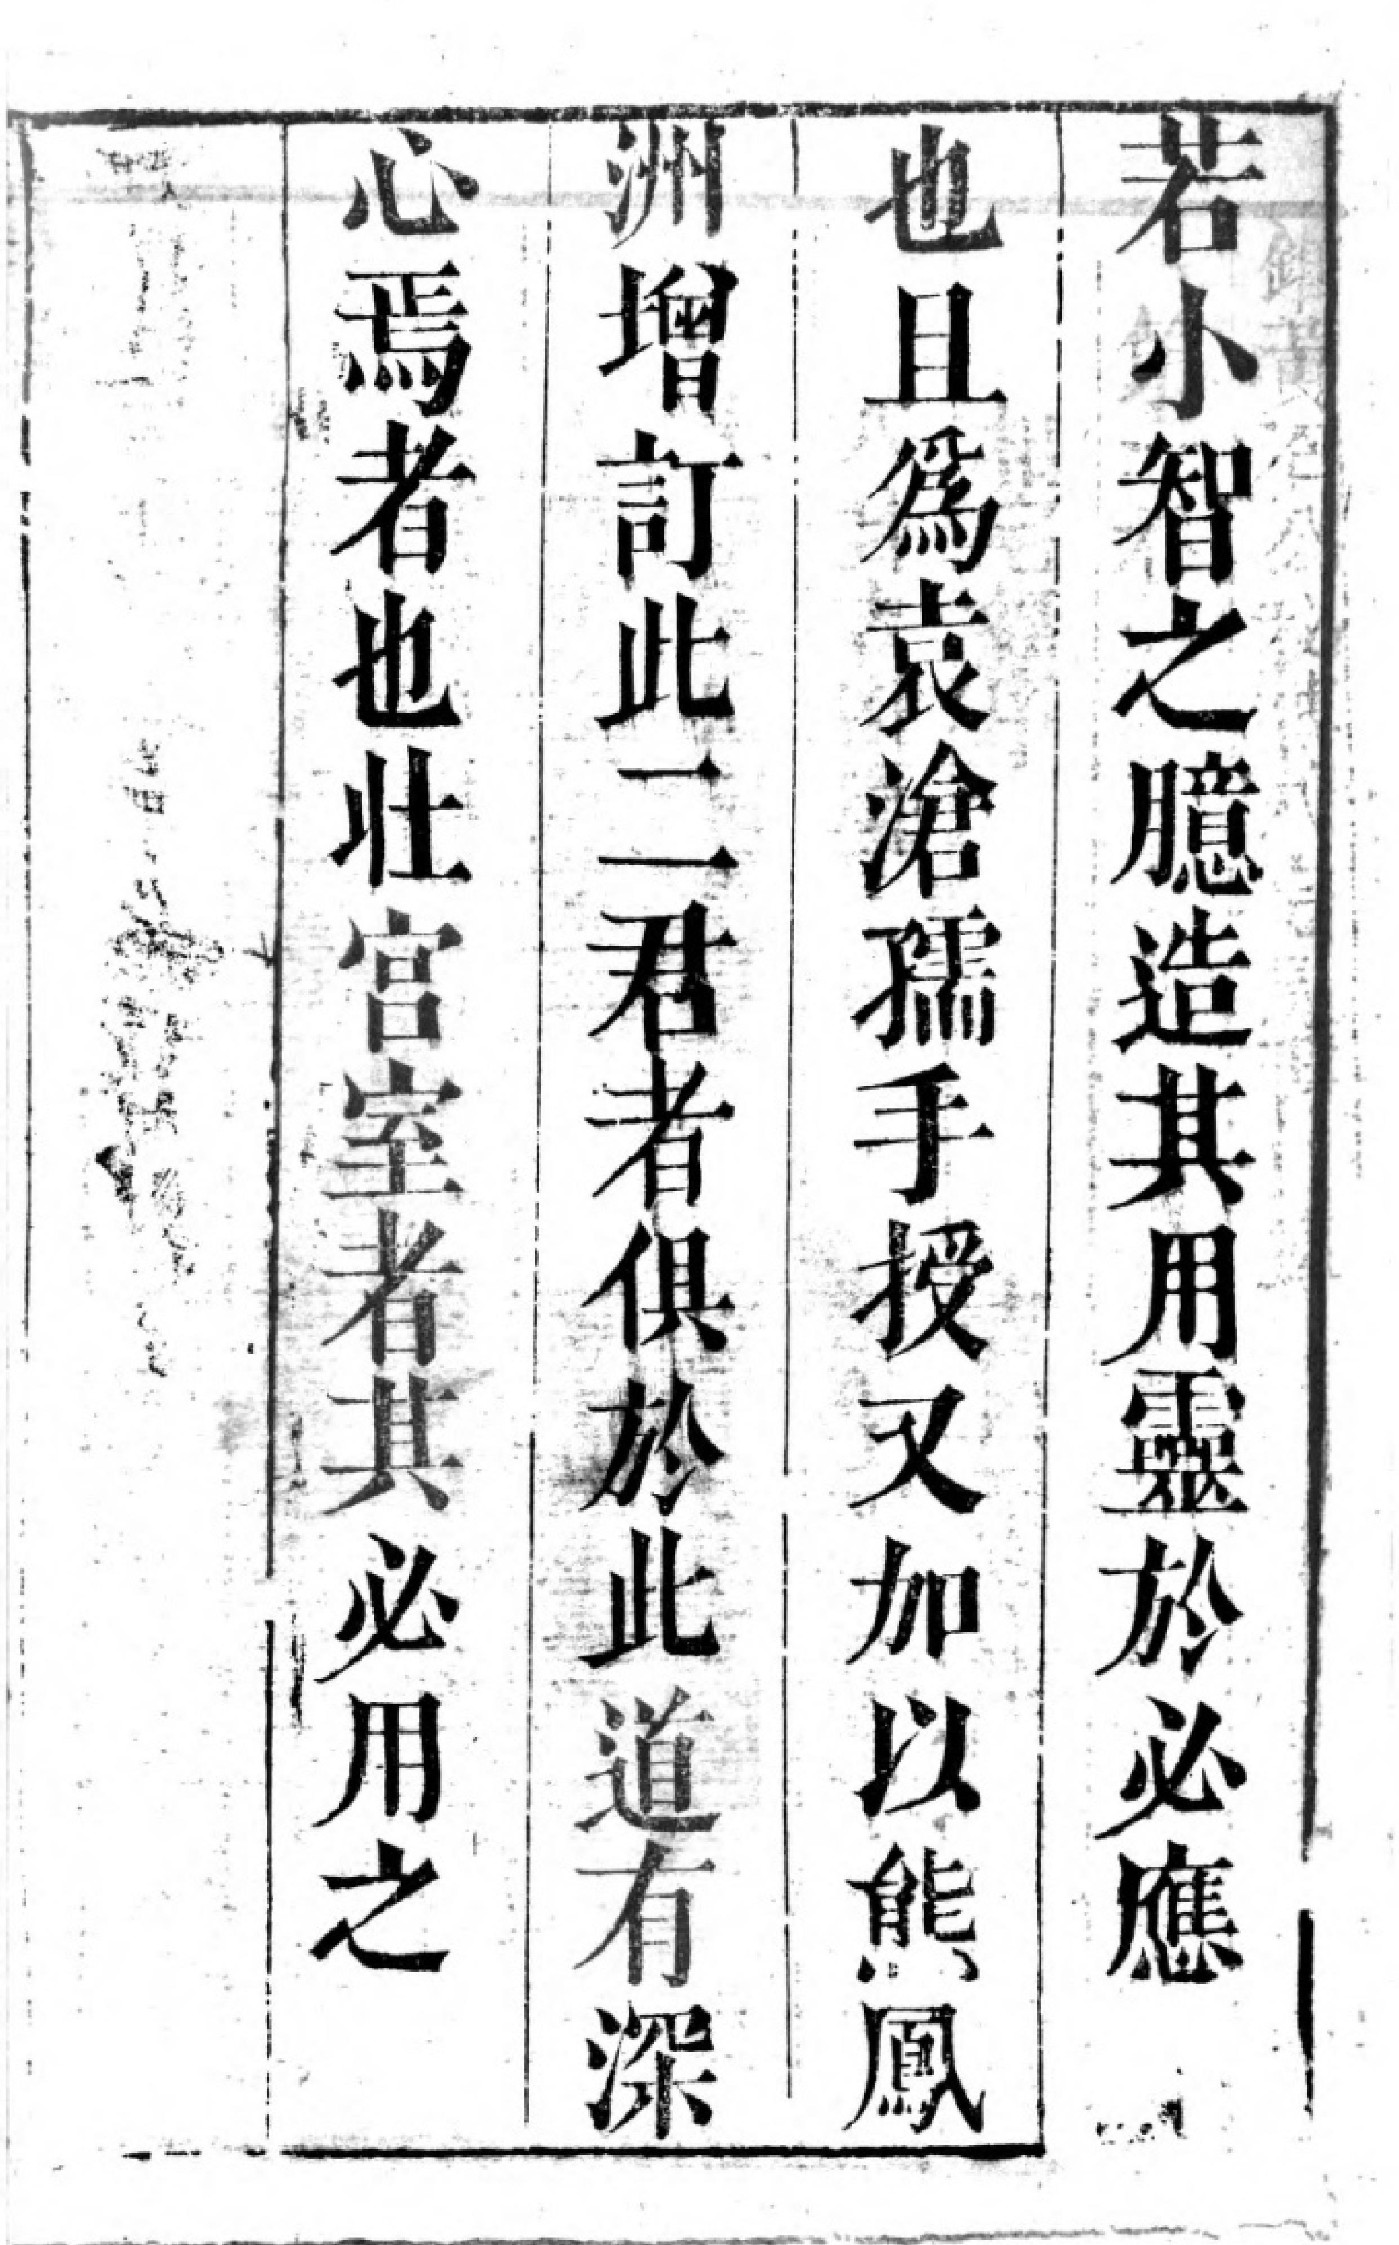 若小智之臆造其用靈於必應
也且爲袁滄孺手授又加以熊鳳
洲增訂此二君者俱於此道有深
心焉者也壯宮室者其必用之